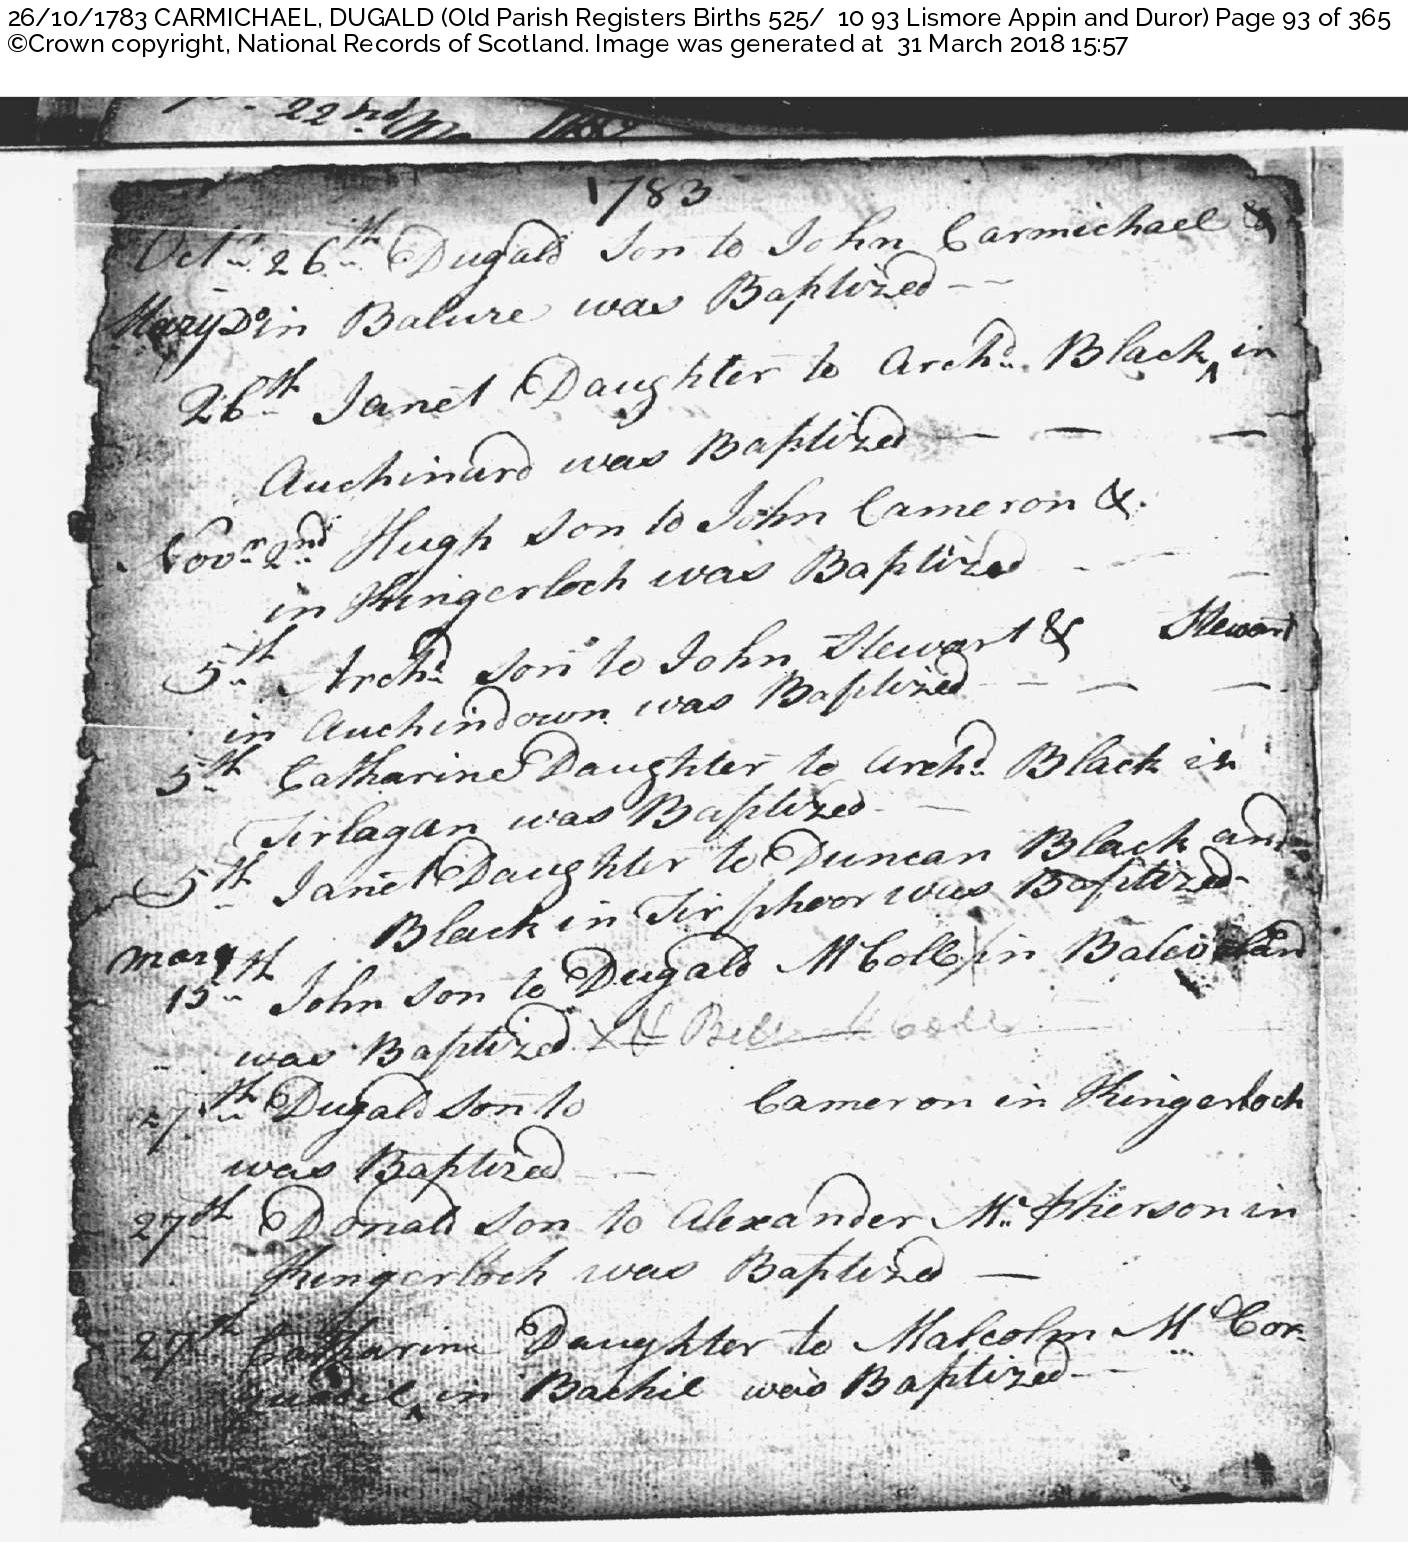 26/10/1783 CARMICHAEL, DUGALD (Old Parish Registers Births 525/  10 93 Lismore Appin and Duror) Page 93 of 365
©Crown copyright, National Records of Scotland. Image was generated at  31 March 2018 15:57
22nd
1783
Octr. 26th Dugald Son to John Carmichael &
Mary Do in Balure was Baptized
26th Janet Daughter to Archd. Black in
Auchinard was Baptized
Novr. 2nd Hugh Son to John Cameron &
in Kingerloch was Baptized
5th Archd. Son to John Stewart & Stewart
in Auchindown was Baptized
5th Catharine Daughter to Archd. Black in
Tirlagan was Baptized
5th Janet Daughter to Duncan Black and
Black in Tirphoor was Baptized
Mary
15th John Son to Dugald McColl in
was Baptized
27th Dugald Son to Cameron in Kingerloch
was Baptized
27th Donald Son to Alexander Mc Pherson in
Kingerloch was Baptized
27th Catharine Daughter to Malcolm Mc Cor-
in Bachil was Baptized